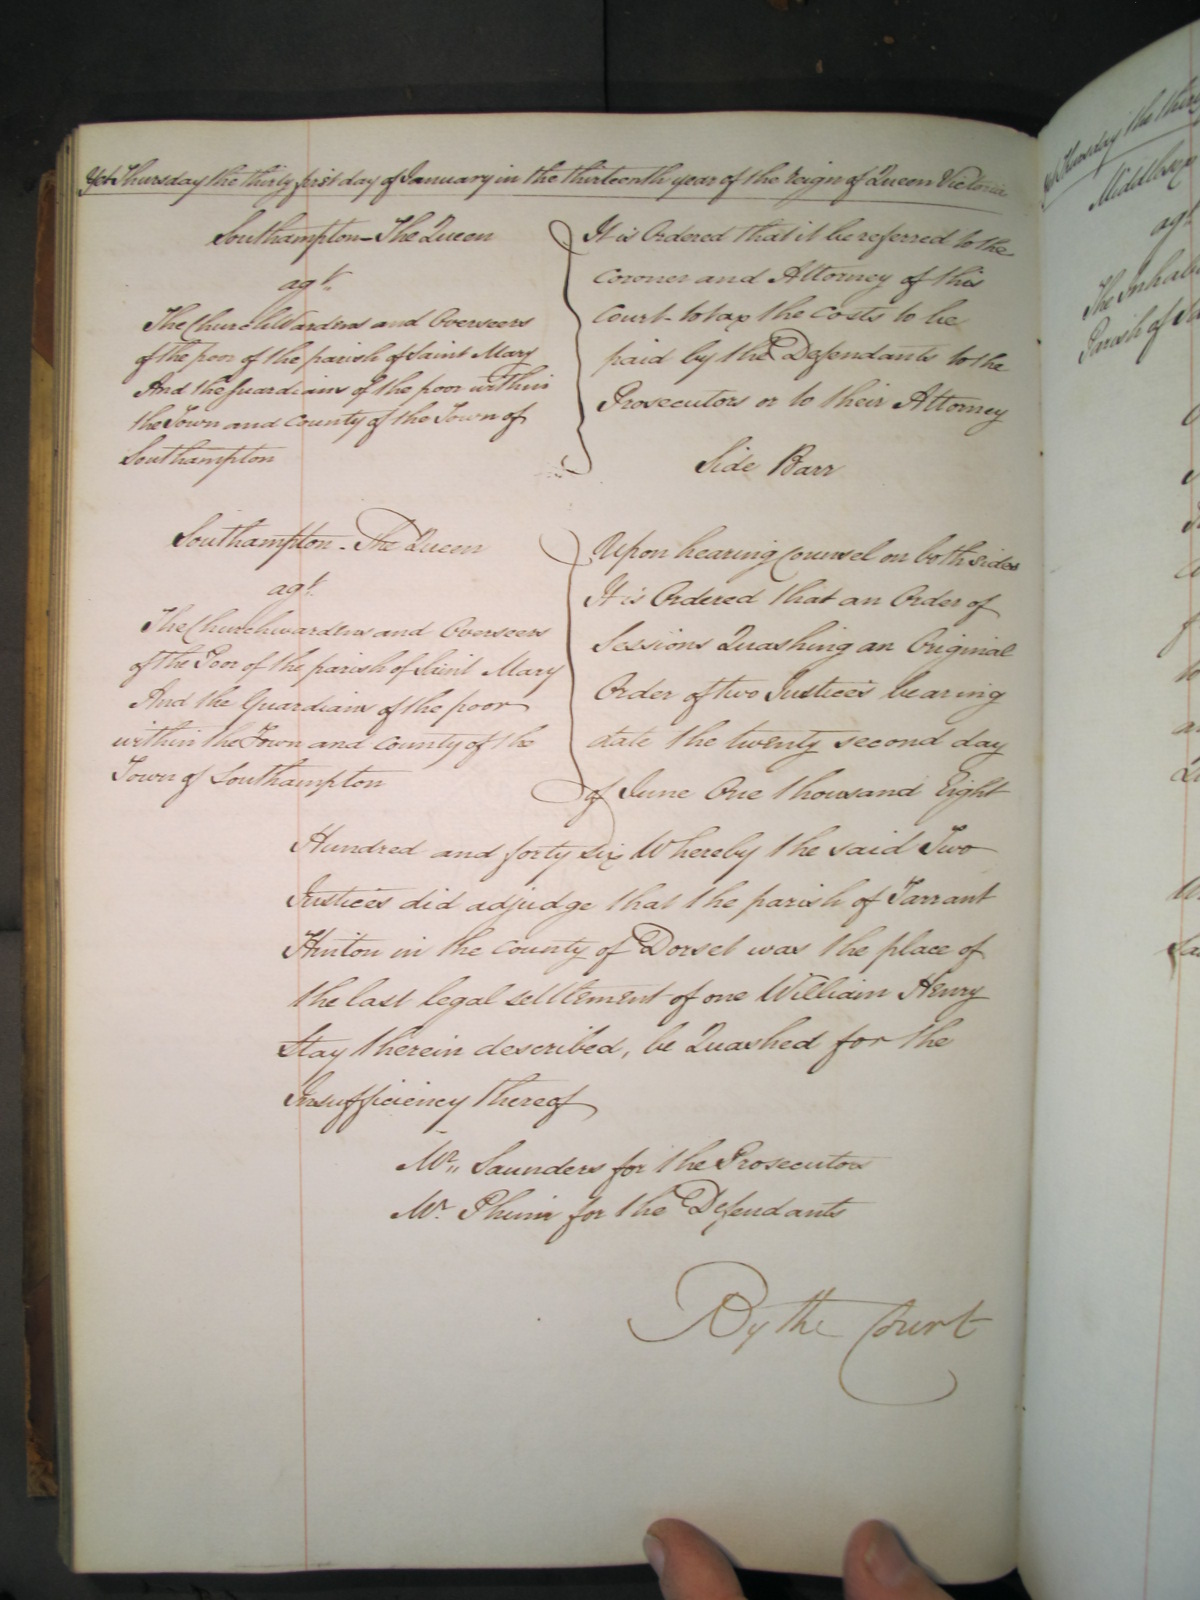 Yet Thursday the thirty first day of January in the thirteenth year of the Reign of Queen Victoria
Southampton - The Queen
agt.
The Churchwardens and Overseers
of the poor of the parish of Saint Mary
And the Guardians of the poor within
the Town and County of the Town of
Southampton
It is Ordered that it be referred to the
Coroner and Attorney of this
Court to tax the Costs to be
paid by the Defendants to the
Prosecutors or to their Attorney
Side Barr
Southampton - The Queen
agt.
The Churchwardens and Overseers
of the Poor of the parish of Saint Mary
And the Guardians of the poor
within the Town and County of the
Town of Southampton
Upon hearing Counsel on both sides
It is Ordered that an Order of
Sessions Quashing an Original
Order of two Justices bearing
date the twenty second day
of June One thousand Eight
Hundred and forty six Whereby the said Two
Justices did adjudge that the parish of Tarrant
Hinton in the County of Dorset was the place of
the last legal settlement of one William Henry
Stay therein described, be Quashed for the
Insufficiency thereof
Mr. Saunders for the Prosecutors
Mr. for the Defendants
By the Court
Thursday the
Middlesex
agt
The
Parish of